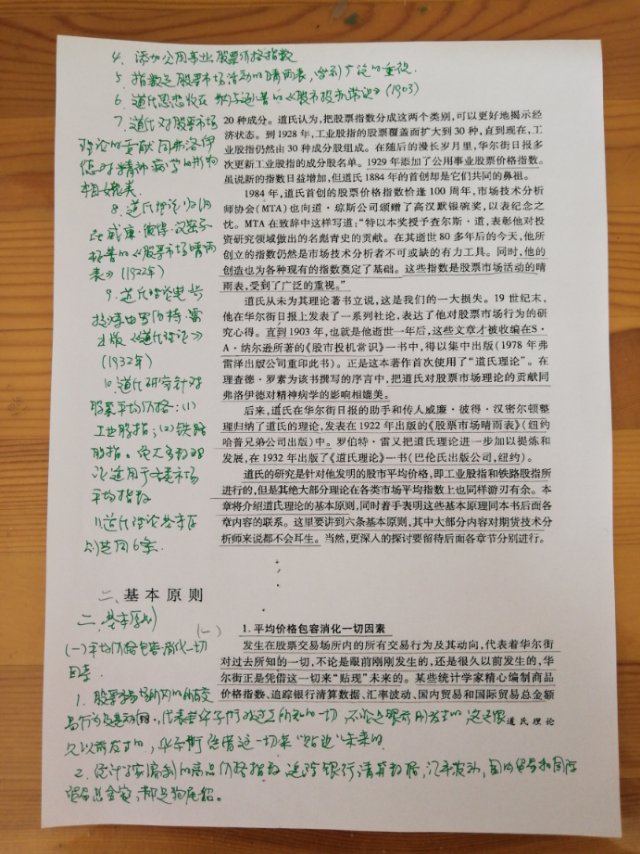 4. 添加公用事业股票价格指数
5. 指数是股票市场活动的晴雨表，受到广泛的重视
6. 道氏思想收在 纳尔逊著的《股市投机常识》(1903)
7. 道氏对股票市场
理论的贡献同弗洛伊
德对精神病学的影响
相媲美
8. 道氏理论归纳
在威廉·彼得·汉密尔
顿著的《股票市场晴雨
表》(1922年)
9. 道氏理论
《道氏理论》
(1932年)
10. 道氏研究针对
股票平均价格：(1)
工业股指；(2) 铁路
股指。绝大多数理
论适用于各类市场
平均指数
11. 道氏理论
共同6条
20 种成分。道氏认为，把股票指数分成这两个类别，可以更好地揭示经
济状态。到 1928 年，工业股指的股票覆盖面扩大到 30 种，直到现在，工
业股指仍然由 30 种成分股组成。在随后的漫长岁月里，华尔街日报多
次更新工业股指的成分股名单。1929 年添加了公用事业股票价格指数。
虽说新的指数日益增加，但道氏 1884 年的首创却是它们共同的鼻祖。
1984 年，道氏首创的股票价格指数恰逢 100 周年，市场技术分析
师协会(MTA)也向道·琼斯公司颁赠了高汉默银碗奖，以表纪念之
忱。MTA 在致辞中这样写道：“特以本奖授予查尔斯·道，表彰他对投
资研究领域做出的名彪青史的贡献。在其逝世 80 多年后的今天，他所
创立的指数仍然是市场技术分析者不可或缺的有力工具。同时，他的
创造也为各种现有的指数奠定了基础。这些指数是股票市场活动的晴
雨表，受到了广泛的重视。”
道氏从未为其理论著书立说，这是我们的一大损失。19 世纪末，
他在华尔街日报上发表了一系列社论，表达了他对股票市场行为的研
究心得。直到 1903 年，也就是他逝世一年后，这些文章才被收编在 S·
A·纳尔逊所著的《股市投机常识》一书中，得以集中出版(1978 年弗
雷泽出版公司重印此书)。正是这本著作首次使用了“道氏理论”。在
理查德·罗素为该书撰写的序言中，把道氏对股票市场理论的贡献同
弗洛伊德对精神病学的影响相媲美。
后来，道氏在华尔街日报的助手和传人威廉·彼得·汉密尔顿整
理归纳了道氏的理论，发表在 1922 年出版的《股票市场晴雨表》(纽约
哈普兄弟公司出版)中。罗伯特·雷又把道氏理论进一步加以提炼和
发展，在 1932 年出版了《道氏理论》一书(巴伦氏出版公司，纽约)。
道氏的研究是针对他发明的股市平均价格，即工业股指和铁路股指所
进行的，但是其绝大部分理论在各类市场平均指数上也同样游刃有余。本
章将介绍道氏理论的基本原则，同时着手表明这些基本原理同本书后面各
章内容的联系。这里要讲到六条基本原则，其中大部分内容对期货技术分
析师来说都不会耳生。当然，更深入的探讨要留待后面各章节分别进行。
二、基本原则
二、基本原则
(一)
1. 平均价格包容消化一切因素
发生在股票交易场所内的所有交易行为及其动向，代表着华尔街
对过去所知的一切，不论是眼前刚刚发生的，还是很久以前发生的，华
尔街正是凭借这一切来“贴现”未来的。某些统计学家精心编制商品
价格指数、追踪银行清算数据、汇率波动、国内贸易和国际贸易总金额
道氏理论
(一)平均价格包容消化一切
因素
1. 股票交易场所内的所有交
易行为及其动向，代表华尔街对过去所知的一切 不论是眼前刚发生的 还是很
久以前发生的，华尔街凭借这一切来“贴现”未来的
2. 统计学家编制的商品价格指数 追踪银行清算数据，汇率波动，国内贸易和国际
贸易总金额，都是狗尾貂。